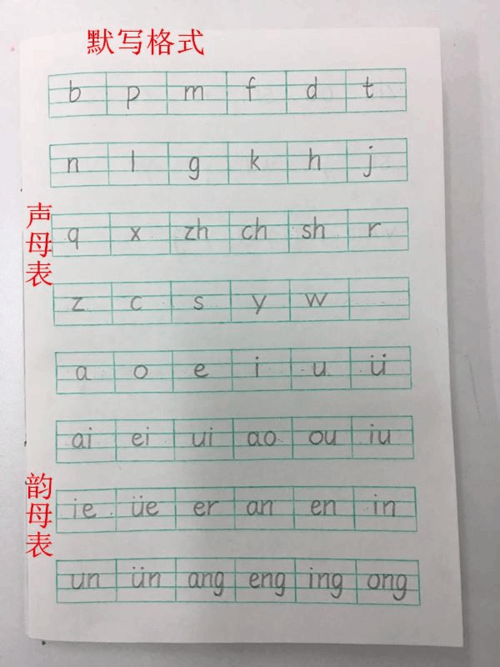 默写格式
b p m f d t
n l g k h j
声母表
q x zh ch sh r
z c s y w
a o e i u ü
ai ei ui ao ou iu
韵母表
ie üe er an en in
un ün ang eng ing ong